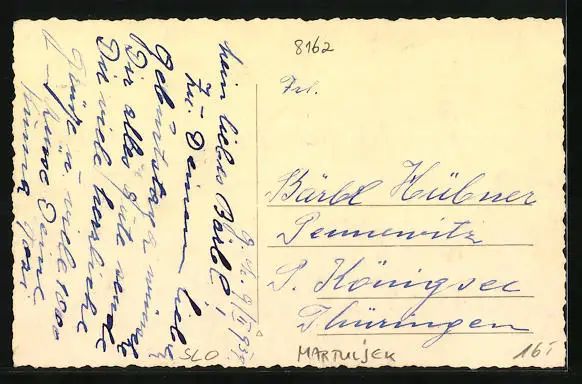 8162
Frl.
Bärbl Hübner
Pennewitz
P. Königsee
Thüringen
mein liebes Bärbl,
Zu Deinem lieben
Geburtstage wünsche
Dir alles Gute sende
Dir viele herzliche
Grüße u. viele 1000
Deine
SLO
MARTULJEK
16 T